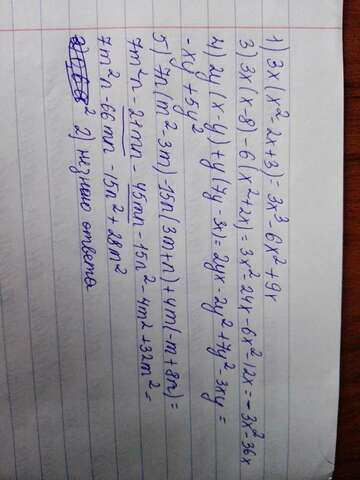 1) 3x(x² 2x+3) = 3x³ - 6x² + 9x
3) 3x(x-8) - 6(x²+2x) = 3x² 24x - 6x² - 12x = -3x² - 36x
4) 2y(x-y) + y(7y-3x) = 2yx - 2y² + 7y² - 3xy =
- xy + 5y²
5) 7n(m²-3m) - 15n(3m+n) + 4m(-m+8n) =
7m²n - 21mn - 45mn - 15n² - 4m² + 32m² =
7m²n - 66mn - 15n² + 28m²
2) не знаю ответа